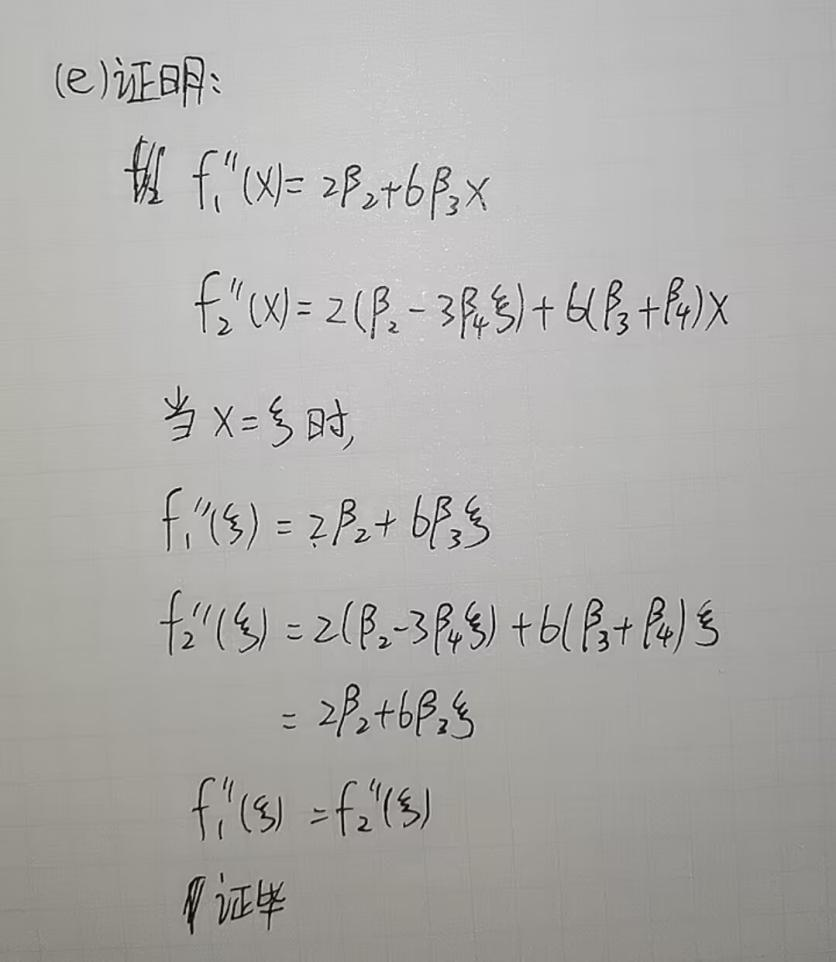 (e)证明:
f₁''(x)=2β₂+6β₃x
f₂''(x)=2(β₂-3β₄ξ)+6(β₃+β₄)x
当x=ξ时,
f₁''(ξ)=2β₂+6β₃ξ
f₂''(ξ)=2(β₂-3β₄ξ)+6(β₃+β₄)ξ
=2β₂+6β₃ξ
f₁''(ξ)=f₂''(ξ)
证毕